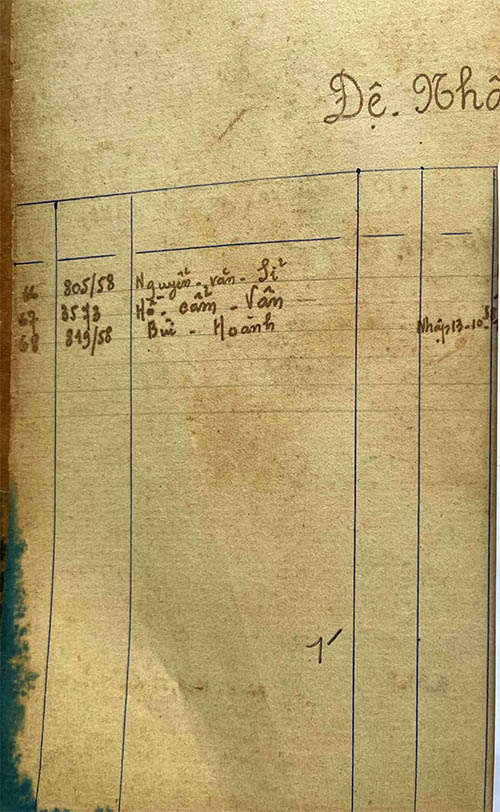 Đệ. Nhấ
66 805/58 Nguyễn - văn - Sĩ
67 3573 Hồ - cẩm - Vân
68 819/58 Bùi - Hoành Nhập 13-10-58
1